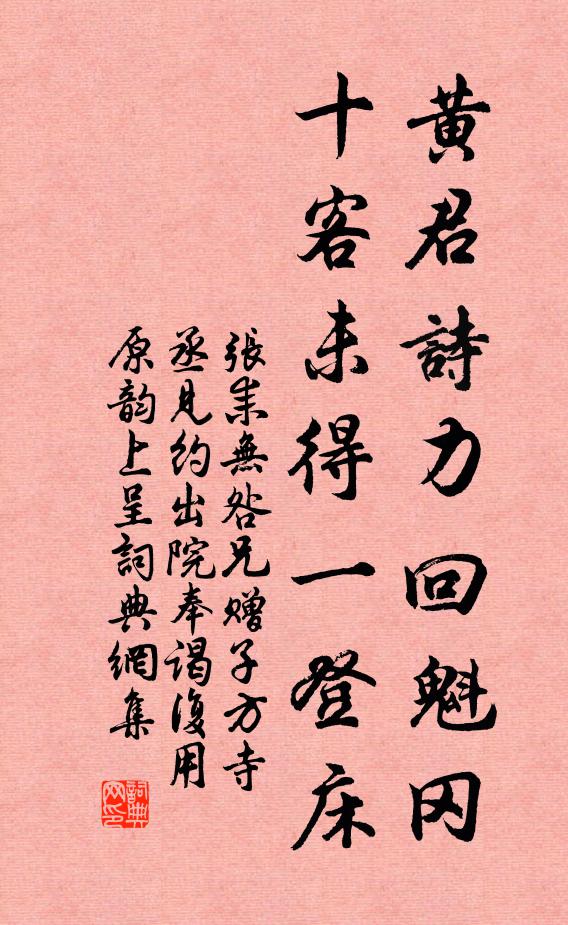 黄君詩力回魁冈
十客未得一登床
張耒無咎兄赠子方寺
丞見約出院奉谒復用
原韵上呈詞典網集
詞典网印